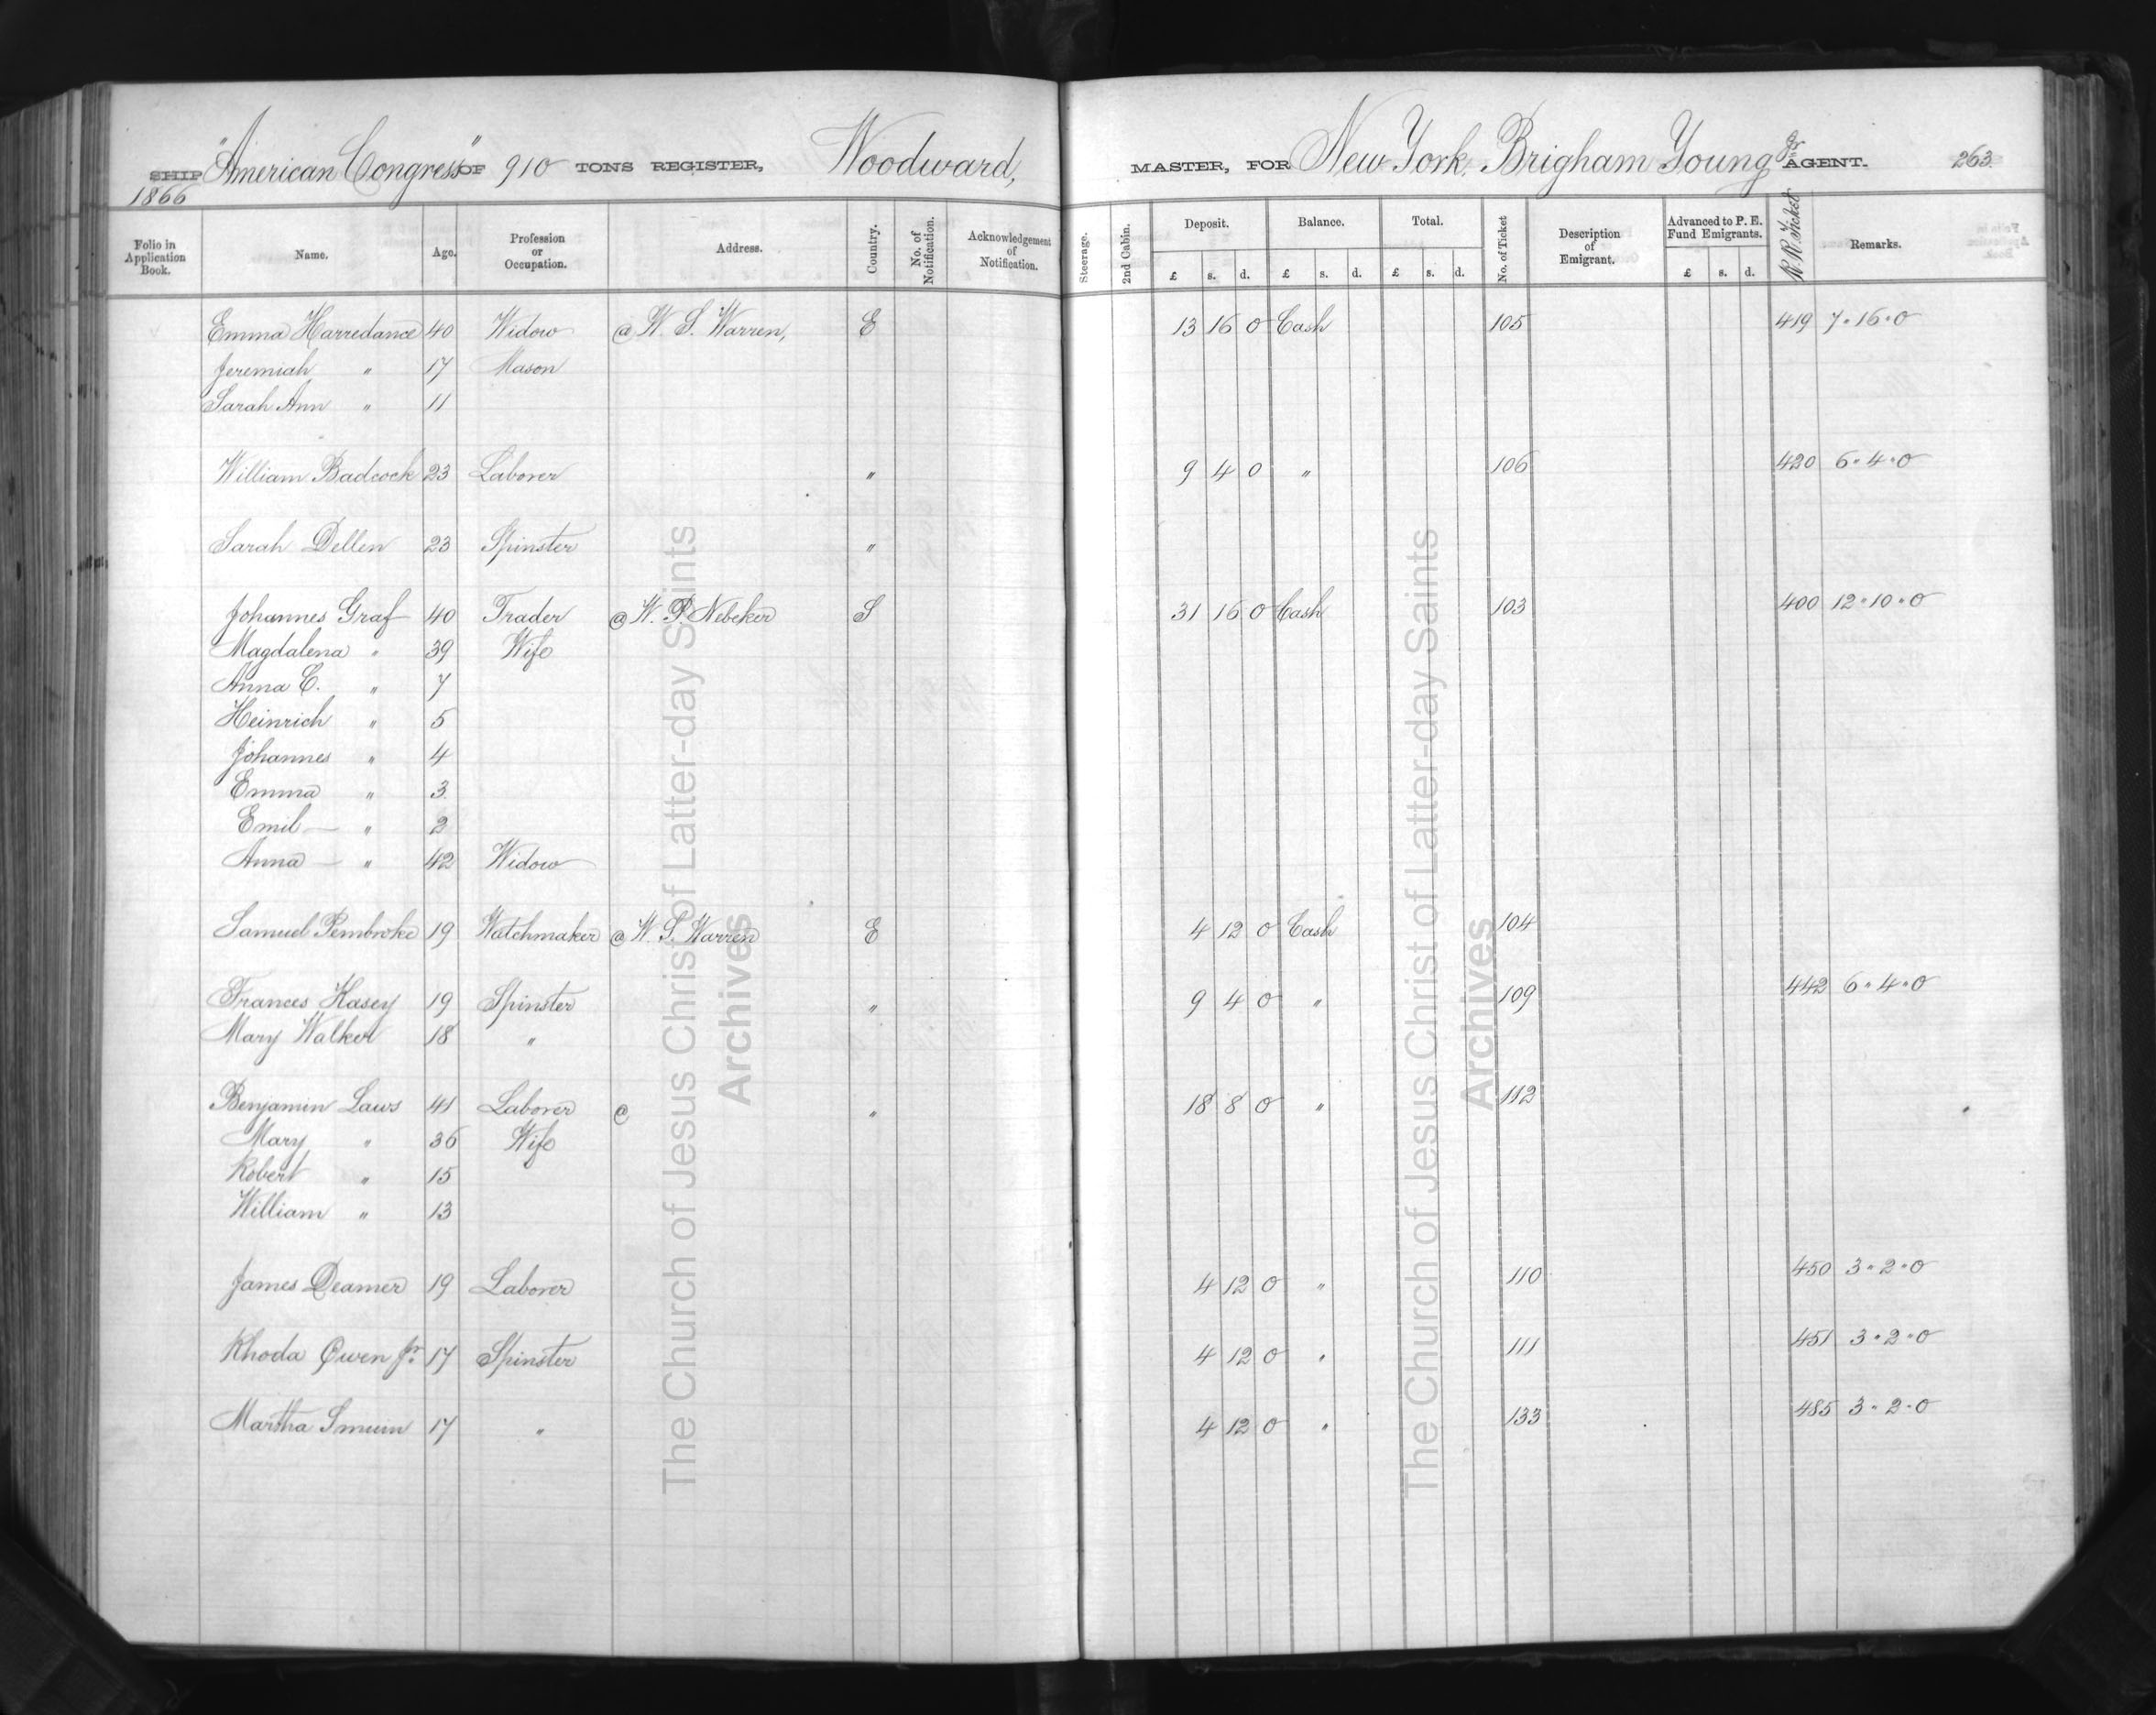 SHIP "American Congress" OF 910 TONS REGISTER, Woodward, MASTER, FOR New York. Brigham Young Jr. AGENT. 263
1866
Folio in Application Book. Name. Age. Profession or Occupation. Address. Country. No. of Notification. Acknowledgement of Notification. Steerage. 2nd Cabin. Deposit. £ s. d. Balance. £ s. d. Total. £ s. d. No. of Ticket Description of Emigrant. Advanced to P. E. Fund Emigrants. £ s. d. R.R. Ticket Remarks.
Emma Harredance 40 Widow @ W. S. Warren, E 13 16 0 Cash 105 419 7 " 16 " 0
Jeremiah " 17 Mason
Sarah Ann " 11
William Badcock 23 Laborer " 9 4 0 " 106 420 6 " 4 " 0
Sarah Dellen 23 Spinster "
Johannes Graf 40 Trader @ W. P. Nebeker S 31 16 0 Cash 103 400 12 " 10 " 0
Magdalena " 39 Wife
Anna C. " 7
Heinrich " 5
Johannes " 4
Emma " 3
Emil — " 2
Anna — " 42 Widow
Samuel Pembroke 19 Watchmaker @ W. S. Warren E 4 12 0 Cash 104
Frances Kasey 19 Spinster " 9 4 0 " 109 442 6 " 4 " 0
Mary Walker 18 "
Benjamin Laws 41 Laborer @ " 18 8 0 " 112
Mary " 36 Wife
Robert " 15
William " 13
James Deamer 19 Laborer 4 12 0 " 110 450 3 " 2 " 0
Rhoda Owen Jr. 17 Spinster 4 12 0 " 111 451 3 " 2 " 0
Martha Smuin 17 " 4 12 0 " 133 485 3 " 2 " 0
The Church of Jesus Christ of Latter-day Saints
Archives
The Church of Jesus Christ of Latter-day Saints
Archives